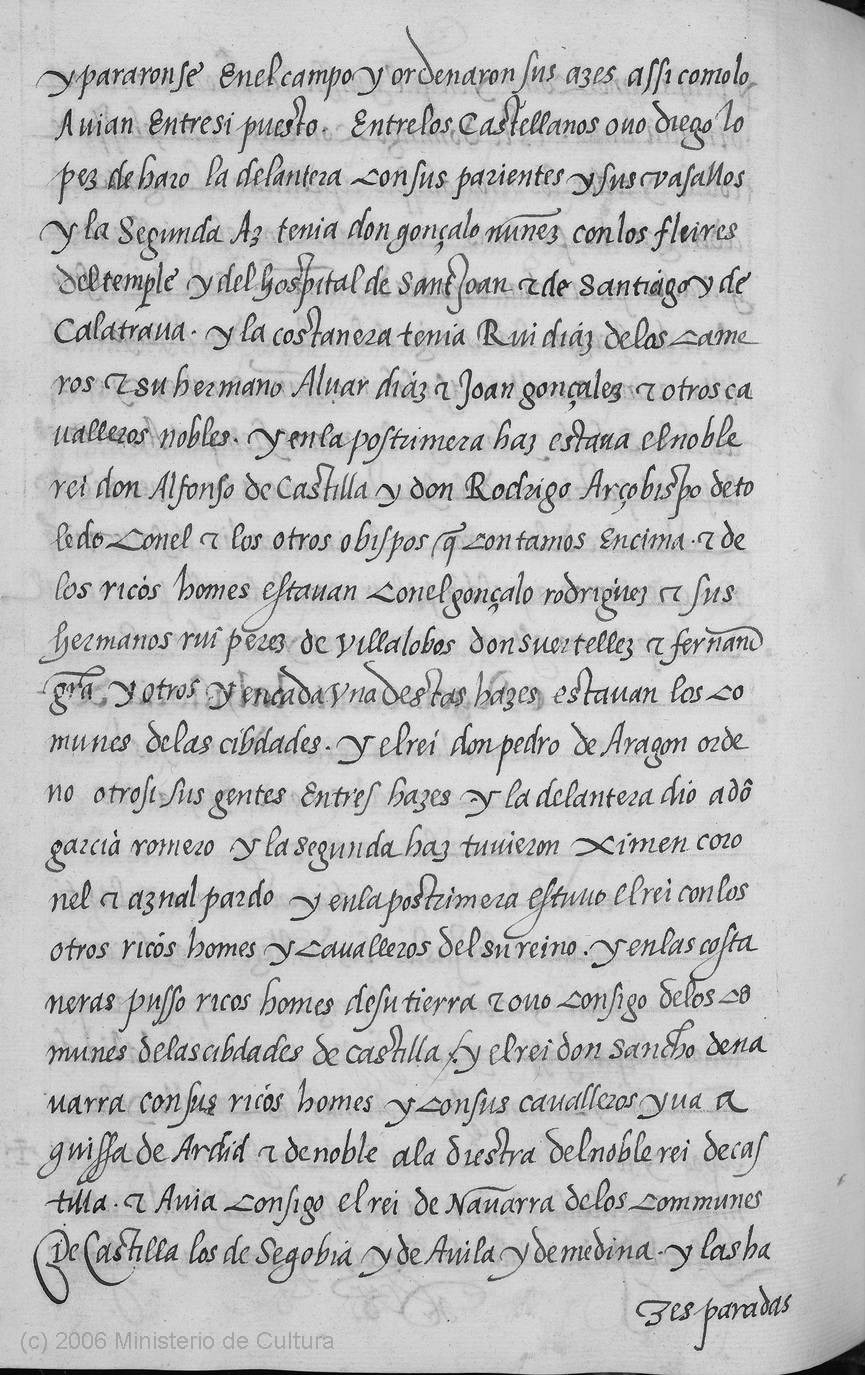 y pararonse Enel campo y ordenaron sus azes assi como lo
Auian Entresi puesto. Entrelos Castellanos ouo diego lo
pez de haro la delantera Consus parientes y sus vasallos
y la Segunda Az tenia don gonçalo nuñez con los fleires
del temple y del hospital de Sant Joan & de Santiago y de
Calatraua. y la costanera tenia Rui diáz de los Came
ros & su hermano Aluar diáz & Joan gonçalez & otros ca
ualleros nobles. y en la postrimera haz estaua el noble
rei don Alfonso de Castilla y don Rodrigo Arçobispo de to
ledo Conel & los otros obispos q̃ Contamos Encima. & de
los ricós homes estauan Conel gonçalo rodriguez & sus
hermanos rui perez de villalobos don suer tellez & fernand
grã y otros y en cada vna destas hazes estauan los Co
munes delas cibdades. y el rei don pedro de Aragon orde
no otrosi sus gentes Entres hazes y la delantera dio a dõ
garcià romero y la segunda haz tuuieron Ximen coro
nel & aznal pardo y en la postrimera estuuo el rei con los
otros ricós homes y Caualleros del su reino. y en las costa
neras pusso ricos homes de su tierra & ouo Consigo delos Co
munes delas cibdades de castilla / y el rei don Sancho de na
uarra con sus ricós homes y Consus caualleros yua a
guissa de Ardid & de noble ala diestra del noble rei de cas
tilla. & Auia Consigo el rei de Nauarra de los Communes
De Castilla los de Segobiá y de Auila y de medina. y las ha
zes paradas
(c) 2006 Ministerio de Cultura